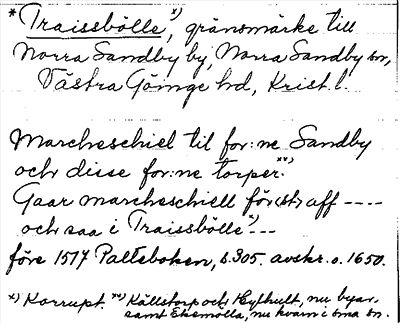 * Traissbölle x), gränsmärke till
Norra Sandby by, Norra Sandby sn,
Västra Göinge hd, Krist. l.
Marcheschiel til for:ne Sandby
och disse for:ne torper. xx)
Gaar marcheschiell för(st) aff ----
och saa i Traissbölle x) ---
före 1517 Palteboken, s. 305. avskr. o. 1650.
x) Korrupt. xx) Källstorp och Hylthult, nu byar,
samt Ekemölla, nu kvarn i sma sn.